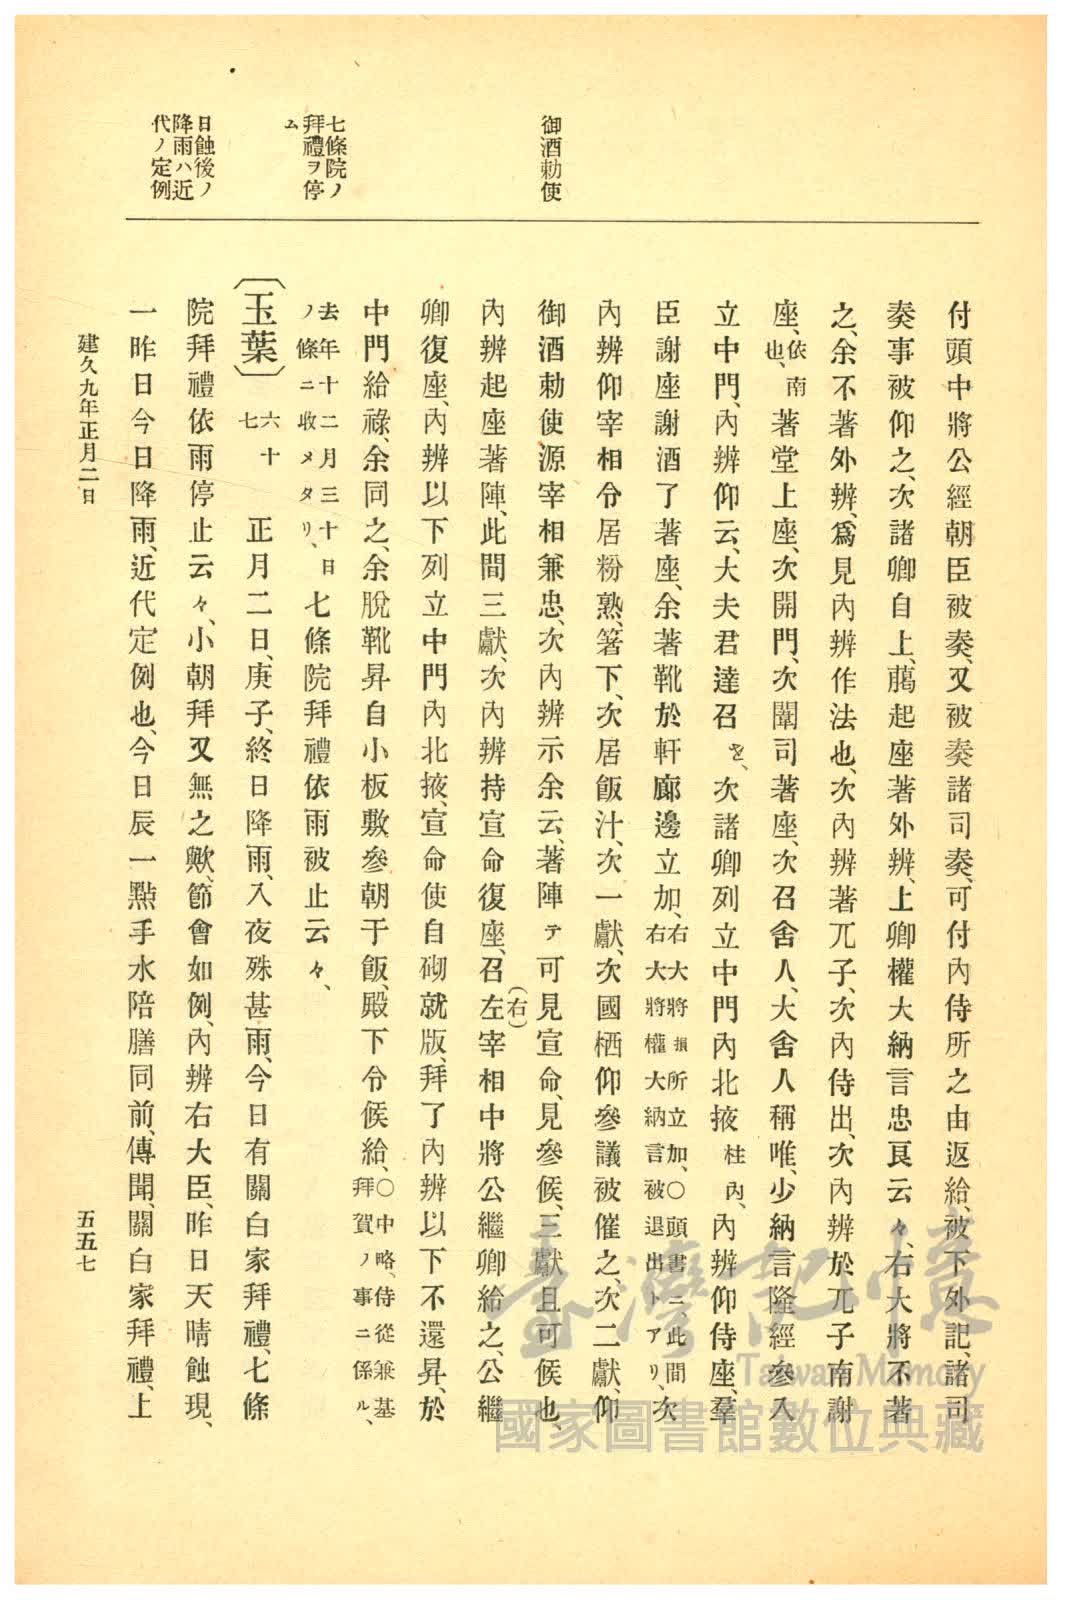 御酒勅使
七條院ノ
拜禮ヲ停
ム
日蝕後ノ
降雨ハ近
代ノ定例
付頭中將公經朝臣被奏、又被奏諸司奏、可付內侍所之由返給、被下外記、諸司
奏事被仰之、次諸卿自上﨟起座著外辨、上卿權大納言忠良云々、右大將不著
之、余不著外辨、爲見內辨作法也、次內辨著兀子、次內侍出、次內辨於兀子南謝
座、依南也、著堂上座、次開門、次闈司著座、次召舍人、大舍人稱唯、少納言隆經參入
立中門、內辨仰云、大夫君達召セ、次諸卿列立中門內北掖柱內、內辨仰侍座、羣
臣謝座謝酒了著座、余著靴於軒廊邊立加、右大將損所立加、○頭書ニ此間右大將權大納言被退出トアリ、次
內辨仰宰相令居粉熟、箸下、次居飯汁、次一獻、次國栖仰參議被催之、次二獻、仰
御酒勅使源宰相兼忠、次內辨示余云、著陣テ可見宣命、見參候、三獻且可候也、
內辨起座著陣、此間三獻、次內辨持宣命復座、召左(右)宰相中將公繼卿給之、公繼
卿復座、內辨以下列立中門內北掖、宣命使自砌就版、拜了內辨以下不還昇、於
中門給祿、余同之、余脫靴昇自小板敷參朝干飯、殿下令候給、○中略、侍從兼基拜賀ノ事ニ係ル、
去年十二月三十日ノ條ニ收メタリ、七條院拜禮依雨被止云々、
〔玉葉〕六十七 正月二日、庚子、終日降雨、入夜殊甚雨、今日有關白家拜禮、七條
院拜禮依雨停止云々、小朝拜又無之歟、節會如例、內辨右大臣、昨日天晴蝕現、
一昨日今日降雨、近代定例也、今日辰一點手水陪膳同前、傳聞、關白家拜禮、上
建久九年正月二日
五五七
臺灣記憶
Taiwan Memory
國家圖書館數位典藏